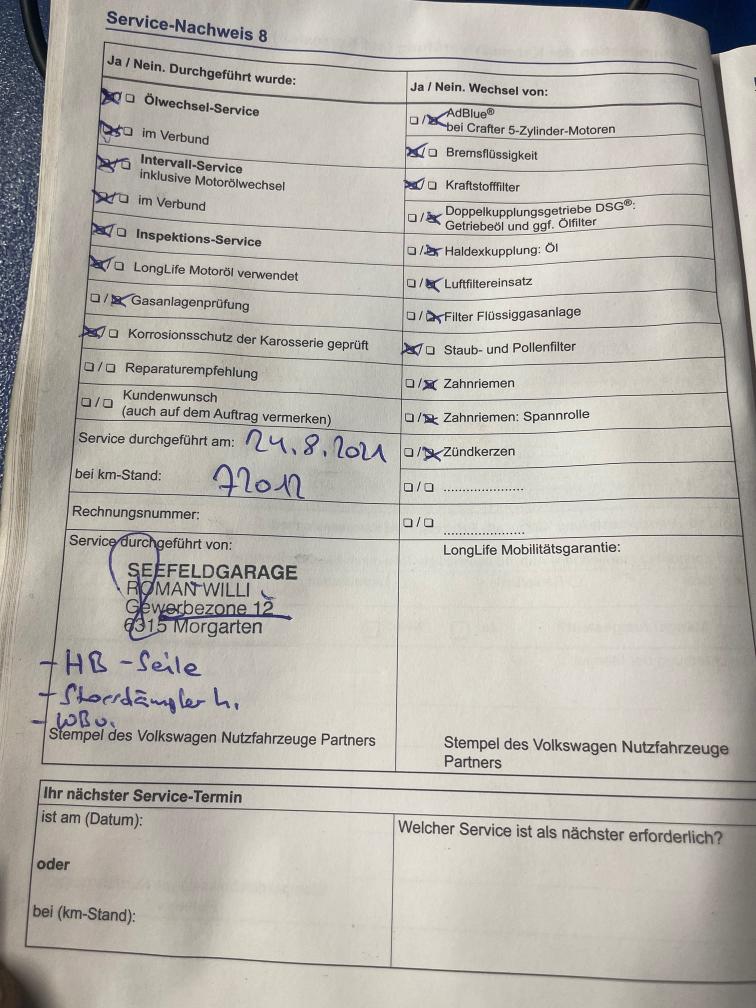 Service-Nachweis 8
Ja / Nein. Durchgeführt wurde:
☒/☐ Ölwechsel-Service
☒/☐ im Verbund
☒/☐ Intervall-Service
inklusive Motorölwechsel
☒/☐ im Verbund
☒/☐ Inspektions-Service
☒/☐ LongLife Motoröl verwendet
☐/☒ Gasanlagenprüfung
☒/☐ Korrosionsschutz der Karosserie geprüft
☐/☐ Reparaturempfehlung
☐/☐ Kundenwunsch
(auch auf dem Auftrag vermerken)
Service durchgeführt am: 24.8.2021
bei km-Stand: 72012
Rechnungsnummer:
Service durchgeführt von:
SEEFELDGARAGE
ROMAN WILLI
Gewerbezone 12
6315 Morgarten
- HB-Seile
- Stossdämpfer h.
- WBv.
Stempel des Volkswagen Nutzfahrzeuge Partners
Ja / Nein. Wechsel von:
☐/☒ AdBlue®
bei Crafter 5-Zylinder-Motoren
☒/☐ Bremsflüssigkeit
☒/☐ Kraftstofffilter
☐/☒ Doppelkupplungsgetriebe DSG®:
Getriebeöl und ggf. Ölfilter
☐/☒ Haldexkupplung: Öl
☐/☒ Luftfiltereinsatz
☐/☒ Filter Flüssiggasanlage
☒/☐ Staub- und Pollenfilter
☐/☒ Zahnriemen
☐/☒ Zahnriemen: Spannrolle
☐/☒ Zündkerzen
☐/☐ ......................
☐/☐ ......................
LongLife Mobilitätsgarantie:
Stempel des Volkswagen Nutzfahrzeuge
Partners
Ihr nächster Service-Termin
ist am (Datum):
oder
bei (km-Stand):
Welcher Service ist als nächster erforderlich?